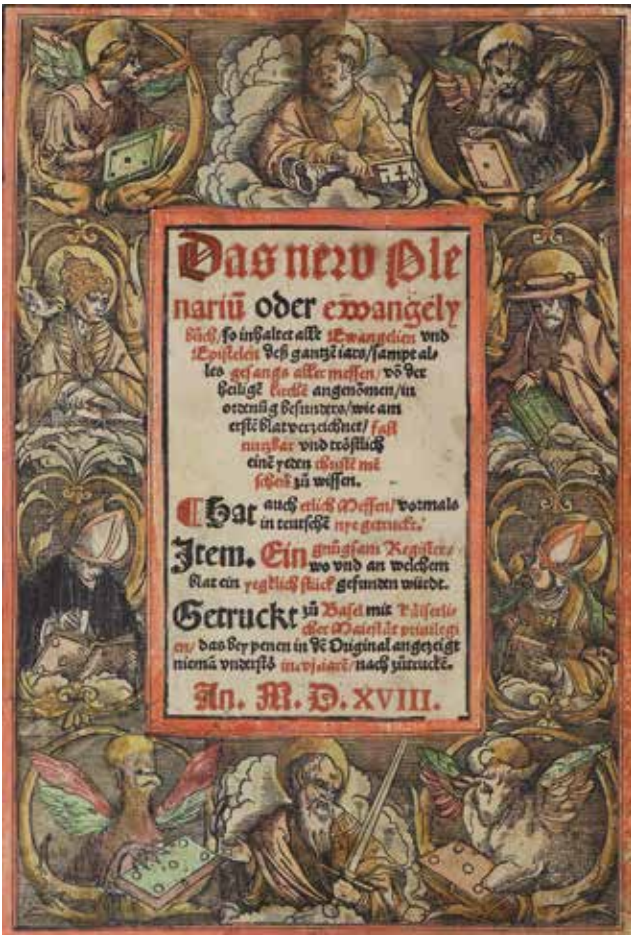 Das new Ple
nariū oder ewangely
bůch/so inhaltet alle Ewangelien vnd
Epistelen deß gantzē iars/sampt al-
les gesangs aller messen/vō der
heiligē kirchē angenōmen/in
ordenūg besunders/wie am
erstē blat verzeichnet/fast
nutzbar vnd tröstlich
einē yeden christē mē
schen zů wissen.
¶Hat auch etlich Messen/vormals
in teutschē nye getruckt.
Item. Ein gnůgsam Register/
wo vnd an welchem
blat ein yegklich stück gefunden würdt.
Getruckt zů Basel mit Käiserli
cher Maieståt priuilegi
en/das bey penen in dē Original angezeigt
niemā vnderstō in iarē/nach zůtruckē.
An. M. D. XVIII.